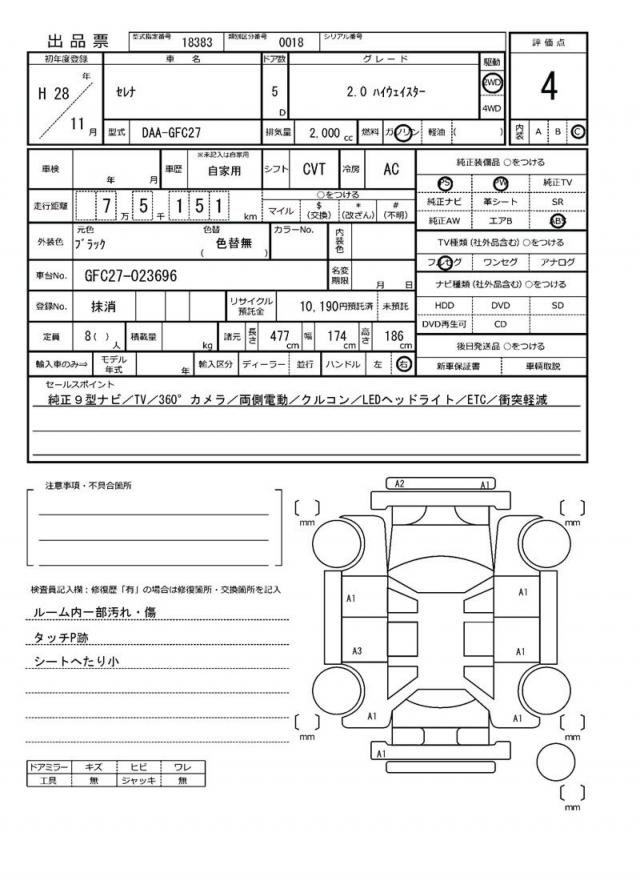 出品票 型式指定番号 18383 類別区分番号 0018 シリアル番号
評価点
4
内装 A B C
初年度登録 車名 ドア数 グレード 駆動
H 28 年 11 月
セレナ
5 D
2.0 ハイウェイスター
2WD
4WD
型式 DAA-GFC27 排気量 2,000 cc 燃料 ガソリン 軽油 ( )
車検 年 月 車歴 ※未記入は自家用 自家用 シフト CVT 冷房 AC
走行距離 7 万 5 千 1 5 1 km
○をつける
マイル $ (交換) * (改ざん) # (不明)
外装色 元色 ブラック 色替 ( 色替無 ) カラーNo. 内装色
車台No. GFC27-023696 名変期限 月 日
登録No. 抹消 リサイクル預託金 10,190円預託済 未預託
定員 8( ) 人 積載量 kg 諸元 長さ 477 cm 幅 174 cm 高さ 186 cm
輸入車のみ⇒ モデル年式 年 輸入区分 ディーラー 並行 ハンドル 左 右
純正装備品 ○をつける
PS PW 純正TV
純正ナビ 革シート SR
純正AW エアB ABS
TV種類(社外品含む)○をつける
フルセグ ワンセグ アナログ
ナビ種類(社外品含む)○をつける
HDD DVD SD
DVD再生可 CD
後日発送品 ○をつける
新車保証書 車輌取説
セールスポイント
純正9型ナビ/TV/360°カメラ/両側電動/クルコン/LEDヘッドライト/ETC/衝突軽減
注意事項・不具合箇所
検査員記入欄:修復歴「有」の場合は修復箇所・交換箇所を記入
ルーム内一部汚れ・傷
タッチP跡
シートへたり小
ドアミラー キズ ヒビ ワレ
工具 無 ジャッキ 無
A2 A1
mm mm
A1 A1
A3 A1
A1 A1
mm mm
A1
mm